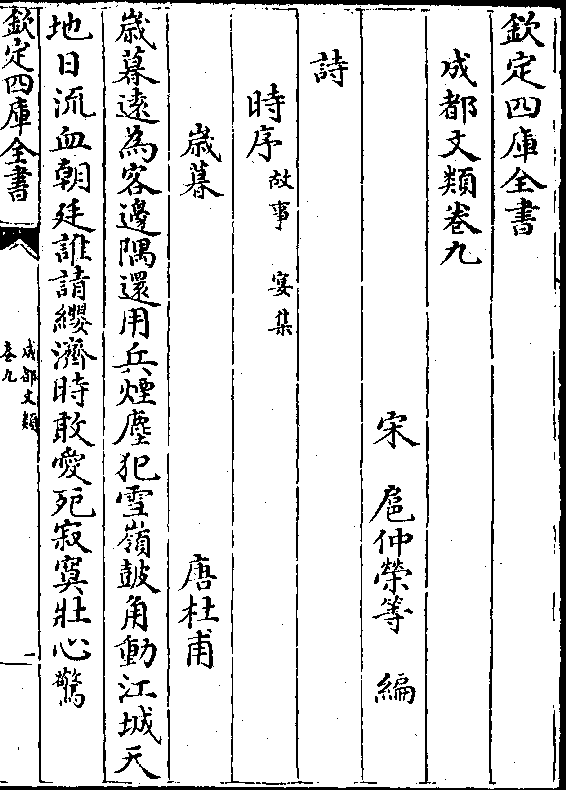 欽定四庫全書
成都文類卷九
宋　扈仲榮等　編
詩
時序故事　宴集
歲暮　唐杜甫
歲暮遠為客邊隅還用兵煙塵犯雪嶺皷角動江城天
地日流血朝廷誰請纓濟時敢愛死寂寞壯心驚
欽定四庫全書
成都文類
卷九
一